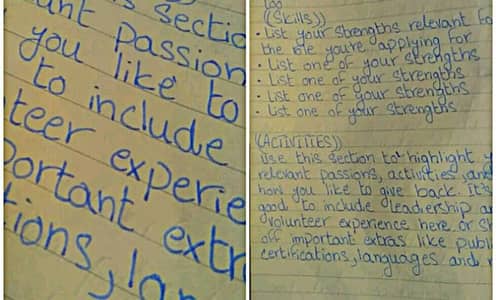 s sectio
ant passion
you like to
to include
teer experie
portant extr
tions, lan
((Skills))
• List your strengths relevant fo
the role you're applying for
• List one of your strengths
• List one of your strengths
• List one of your strengths
• List one of your strengths
((ACTIVITIES))
use this section to highlight y
relevant passions, activities, and
how you like to give back. It's
good to include leadership a
volunteer experience here. or s
off important extras like publ
certifications, languages and